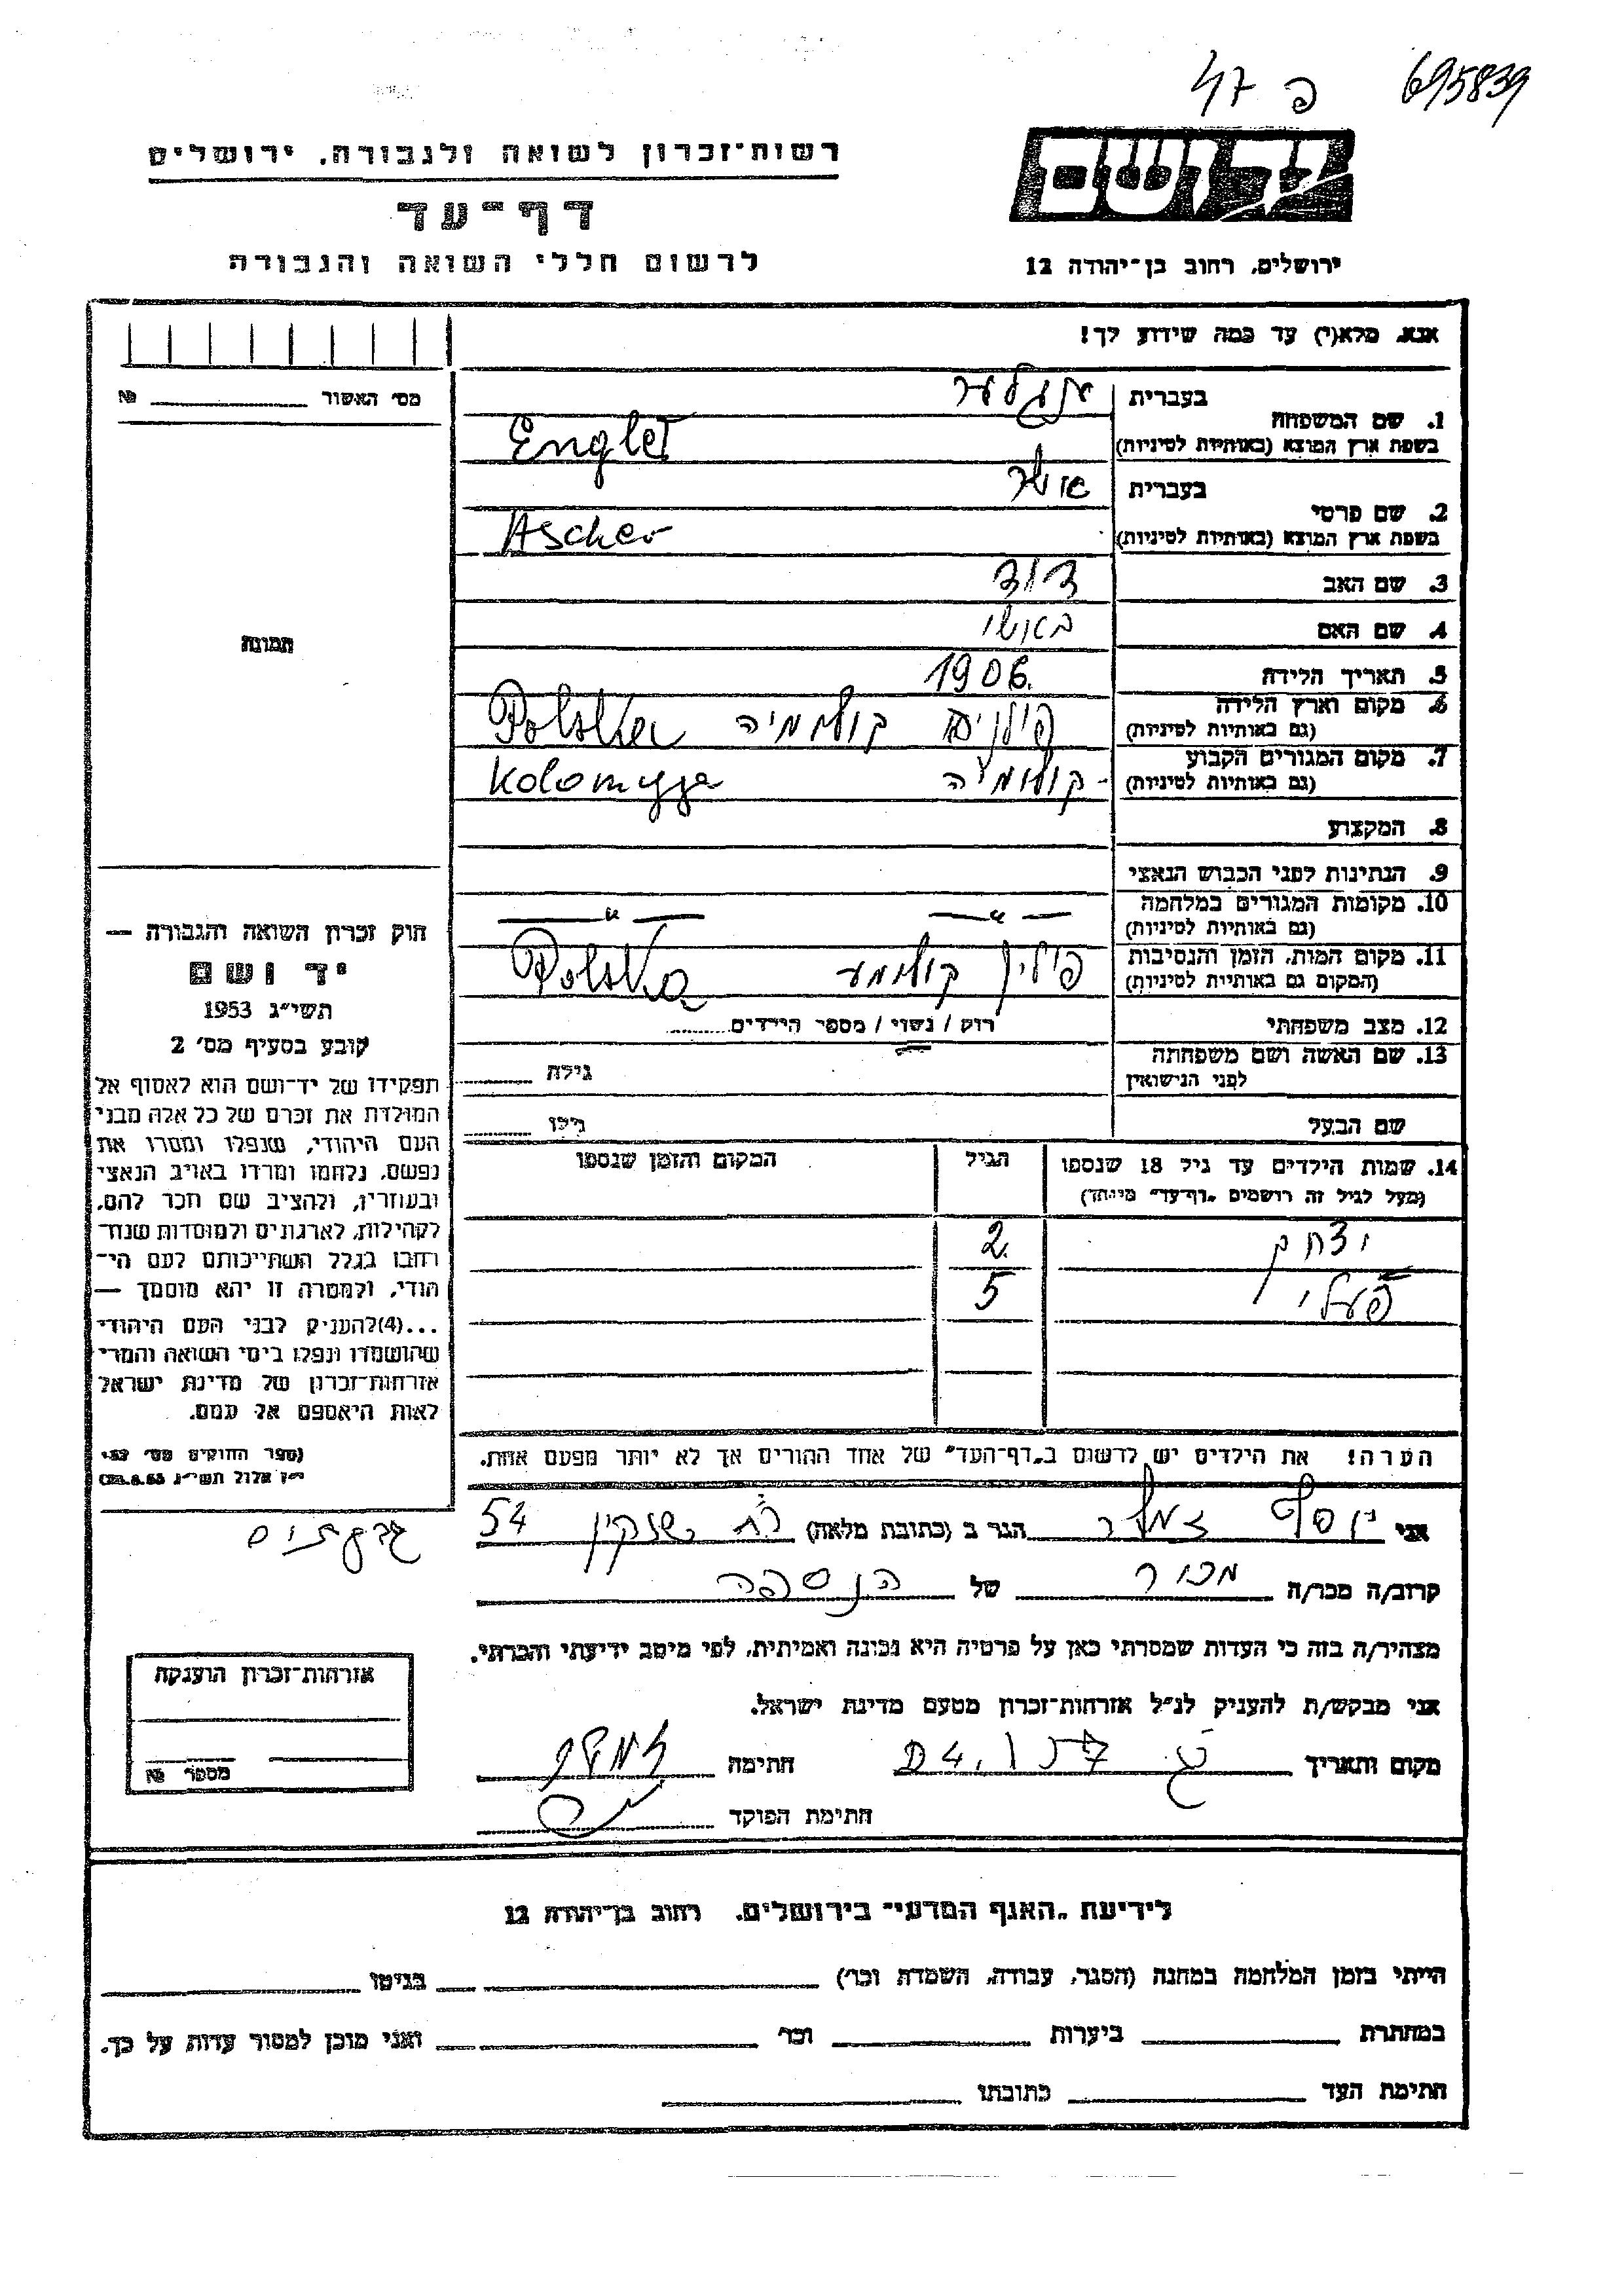 פ 47
695839
רשות־זכרון לשואה ולגבורה, ירושלים
יד ושם
דף־עד
לרשום חללי השואה והגבורה
ירושלים, רחוב בן־יהודה 12
אנא, מלא(י) עד כמה שידוע לך!
מס׳ האשור № 
1. שם המשפחה
בעברית
בשפת ארץ המוצא (באותיות לטיניות)
Englet
2. שם פרטי
בעברית אשר
בשפת ארץ המוצא (באותיות לטיניות)
Ascher
3. שם האב דוד
4. שם האם
תמונה
5. תאריך הלידה 1906.
6. מקום וארץ הלידה
(גם באותיות לטיניות)
קולומיה Polska
7. מקום המגורים הקבוע
(גם באותיות לטיניות)
קולומיה Kolomyja
8. המקצוע
9. הנתינות לפני הכבוש הנאצי
10. מקומות המגורים במלחמה
(גם באותיות לטיניות)
— " — — " —
11. מקום המות, הזמן והנסיבות
(המקום גם באותיות לטיניות)
פולין Polska
12. מצב משפחתי רווק / נשוי / מספר הילדים
13. שם האשה ושם משפחתה
לפני הנישואין
גילה
שם הבעל גילו
14. שמות הילדים עד גיל 18 שנספו
(מעל לגיל זה רושמים „דף־עד״ מיוחד)
הגיל
המקום והזמן שנספו
יצחק 2.
5
הערה! את הילדים יש לרשום ב„דף־העד״ של אחד ההורים אך לא יותר מפעם אחת.
חוק זכרון השואה והגבורה —
יד ושם
תשי״ג 1953
קובע בסעיף מס׳ 2
תפקידו של יד־ושם הוא לאסוף אל
המולדת את זכרם של כל אלה מבני
העם היהודי, שנפלו ומסרו את
נפשם, נלחמו ומרדו באויב הנאצי
ובעוזריו, ולהציב שם וזכר להם,
לקהילות, לארגונים ולמוסדות שנח־
רחבו בגלל השתייכותם לעם הי־
הודי, ולמטרה זו יהא מוסמך —
...(4)להעניק לבני העם היהודי
שהושמדו ונפלו בימי השואה והמרי
אזרחות־זכרון של מדינת ישראל
לאות היאספם אל עמם.
(ספר החוקים מס׳
אלול תשי״ג
אני יוסף הגר ב (כתובת מלאה) 54
קרוב/ה מכר/ה מכור של הנספה
מצהיר/ה בזה כי העדות שמסרתי כאן על פרטיה היא נכונה ואמיתית, לפי מיטב ידיעתי והכרתי.
אני מבקש/ת להעניק לנ״ל אזרחות־זכרון מטעם מדינת ישראל.
מקום ותאריך חתימה
חתימת הפוקד
אזרחות־זכרון הוענקה
מספר №
לידיעת „האגף המדעי״ בירושלים, רחוב בן־יהודה 12
הייתי בזמן המלחמה במחנה (הסגר, עבודה, השמדה וכו׳) בגיטו
במחתרת ביערות וכו׳ ואני מוכן למסור עדות על כך.
חתימת העד כתובתו